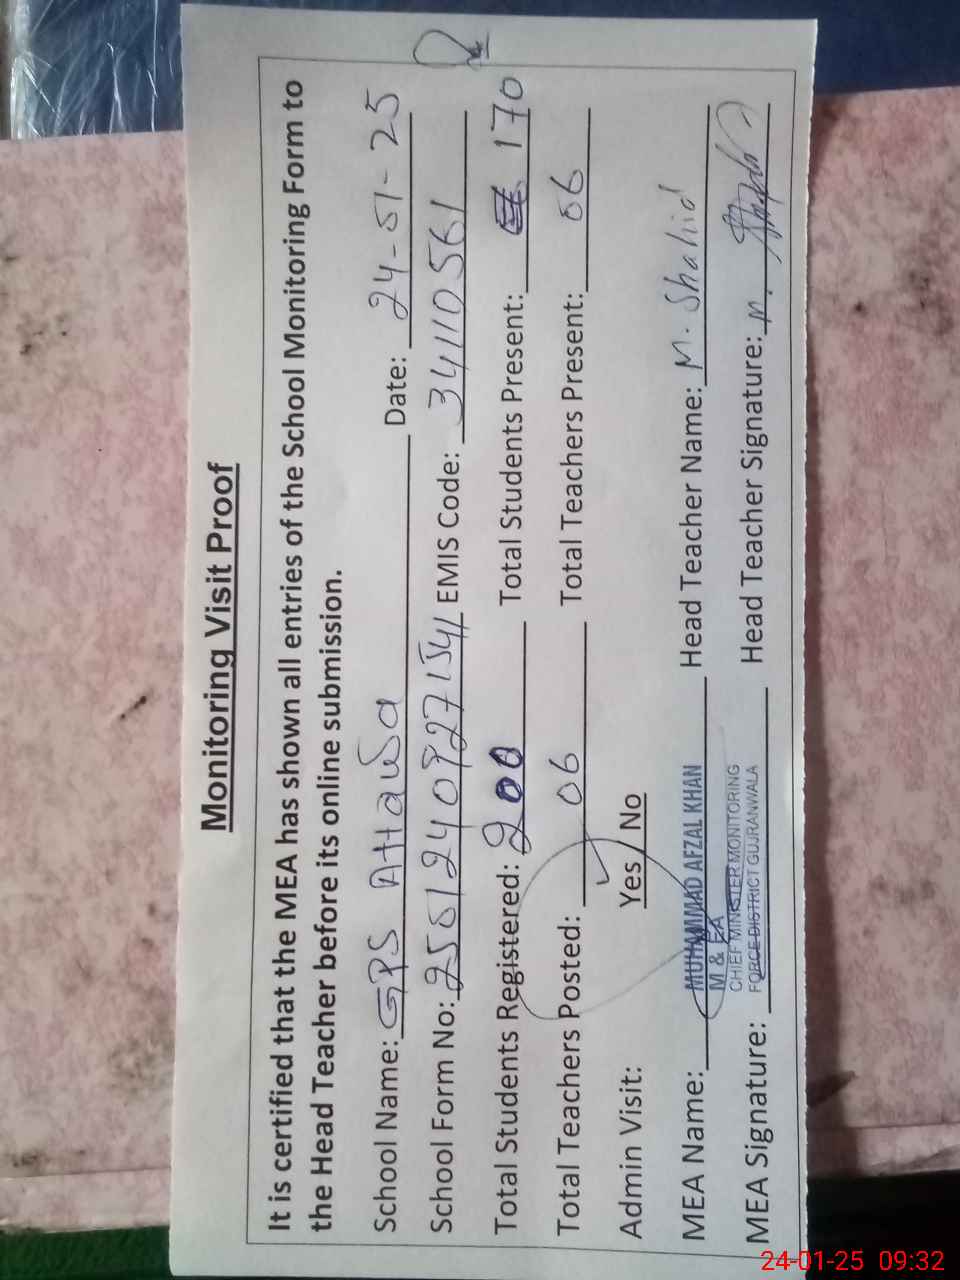 Monitoring Visit Proof
It is certified that the MEA has shown all entries of the School Monitoring Form to
the Head Teacher before its online submission.
School Name: GPS Attawa Date: 24-01-25
School Form No: EMIS Code: 34110561
Total Students Registered: 200 Total Students Present: 170
Total Teachers Posted: 06 Total Teachers Present: 06
Admin Visit: Yes / No
MEA Name: MUHAMMAD AFZAL KHAN Head Teacher Name: M. Shahid
M & EA
CHIEF MINISTER MONITORING
FORCE DISTRICT GUJRANWALA
MEA Signature: Head Teacher Signature: M.
24-01-25 09:32